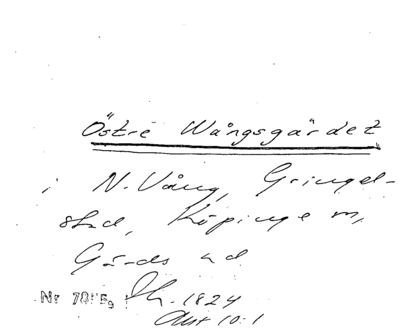 Östre Wångsgärdet
i N. Vång, Gringel-
stad, Köpinge m,
Gärds hd
Sk. 1824
Akt 10:1